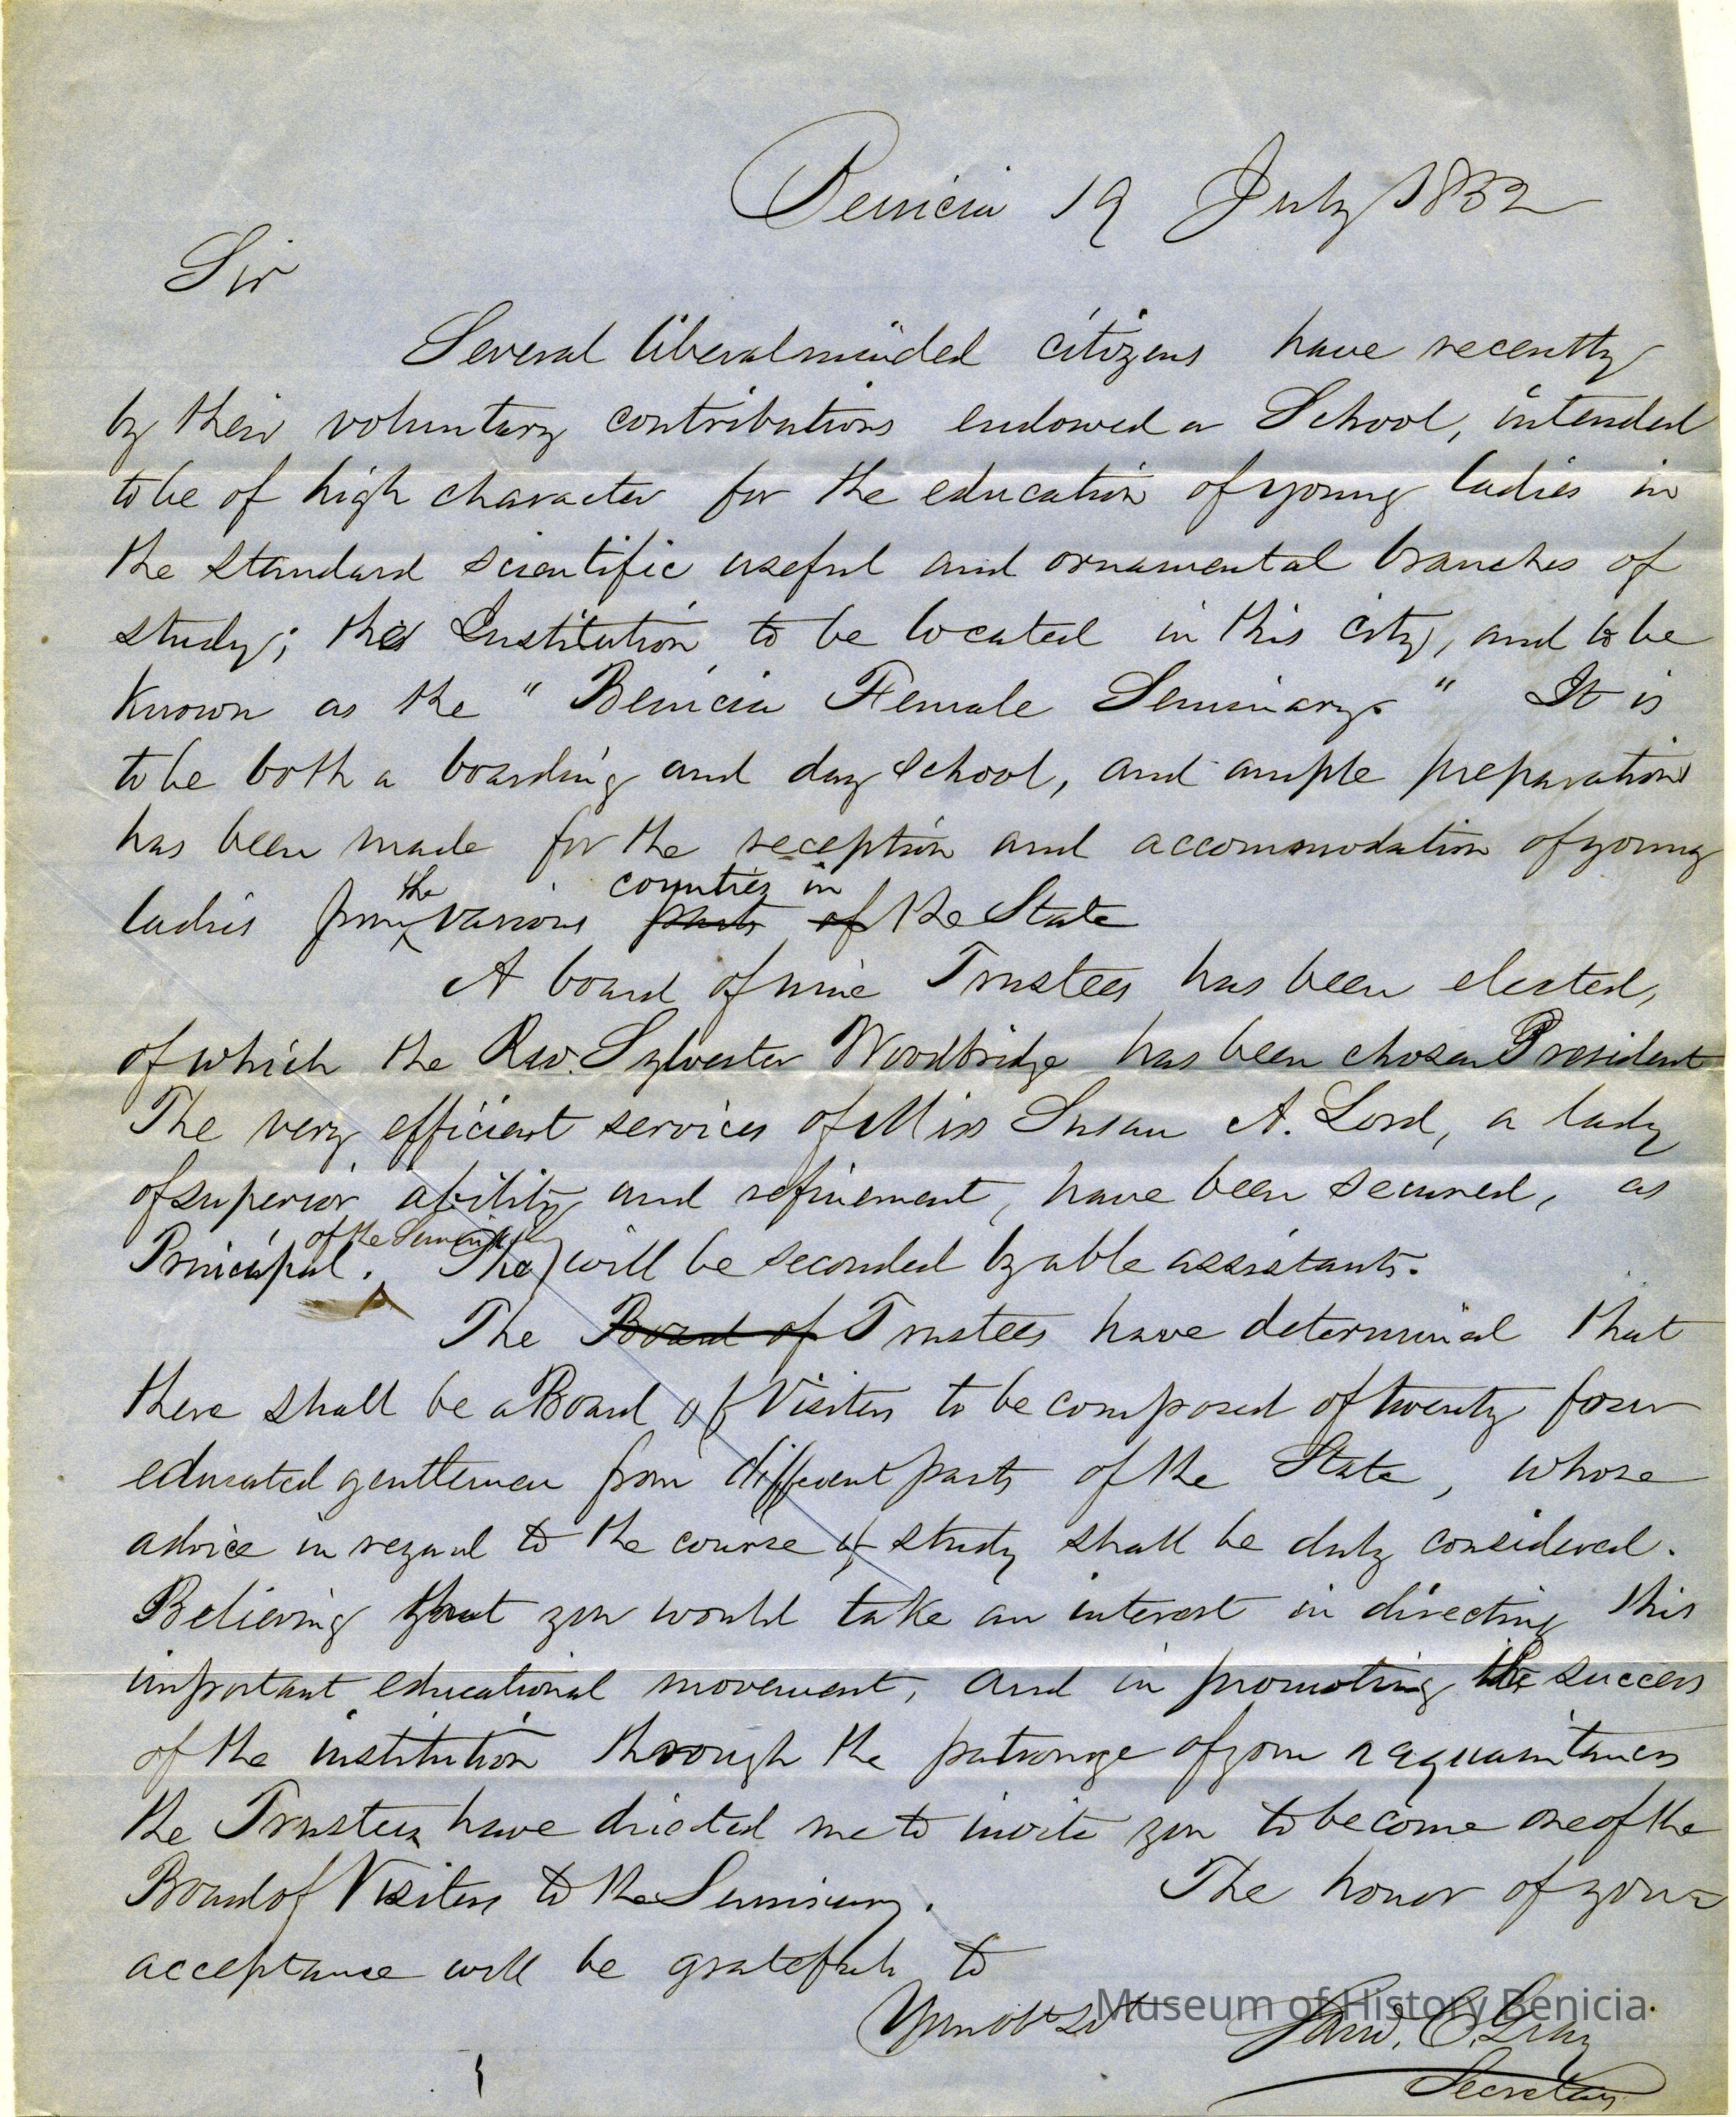 Benicia 19 July 1852
Sir
Several liberalminded citizens have recently
by their voluntary contributions endowed a School, intended
to be of high character for the education of young ladies in
the standard scientific useful and ornamental branches of
study; the Institution to be located in this city, and to be
known as the "Benicia Female Seminary." It is
to be both a boarding and day school, and ample preparation
has been made for the reception and accommodation of young
the counties in
ladies from various parts of the State
A board of nine Trustees has been elected,
of which the Rev. Sylvester Woodbridge has been chosen President
The very efficient services of Miss Susan A. Lord, a lady
of superior ability and refinement, have been secured, as
of the Seminary
Principal. She will be seconded by able assistants.
The Board of Trustees have determined that
there shall be a Board of Visiters to be composed of twenty four
educated gentlemen from different parts of the State, whose
advice in regard to the course of study shall be duly considered.
Believing that you would take an interest in directing this
important educational movement, and in promoting the success
of the institution through the patronage of your acquaintances
the Trustees have directed me to invite you to become one of the
Board of Visiters to the Seminary. The honor of your
acceptance will be grateful to
Your obt St
Museum of History Benicia
C. Gray
Secretary